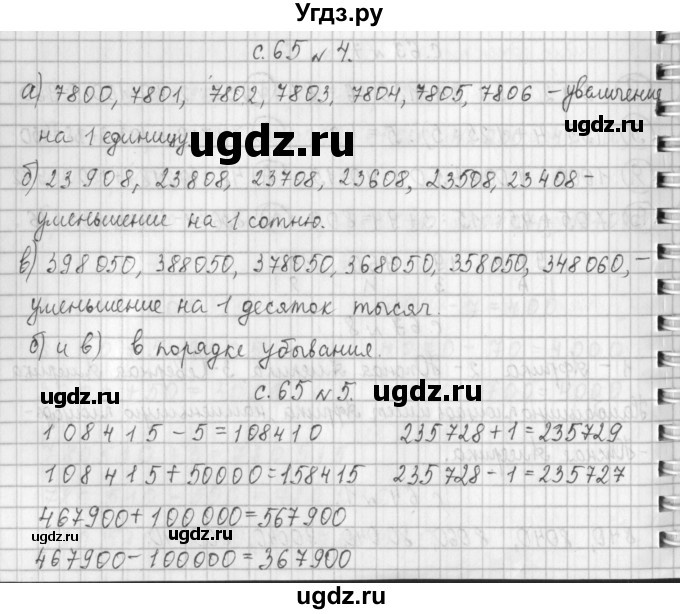 Угдз.ру
с. 65 № 4.
а) 7800, 7801, 7802, 7803, 7804, 7805, 7806 – увеличение
на 1 единицу.
ugdz.ru
б) 23 908, 23808, 23708, 23608, 23508, 23408 –
уменьшение на 1 сотню.
в) 398050, 388050, 378050, 368050, 358050, 348060, –
уменьшение на 1 десяток тысяч.
ugdz.ru
б) и в) в порядке убывания.
с. 65 № 5.
ugdz.ru
108415 – 5 = 108410 235728 + 1 = 235729
108415 + 50000 = 158415 235728 – 1 = 235727
467900 + 100 000 = 567900
ugdz.ru
ugdz.ru
467900 – 100000 = 367900
ugdz.ru